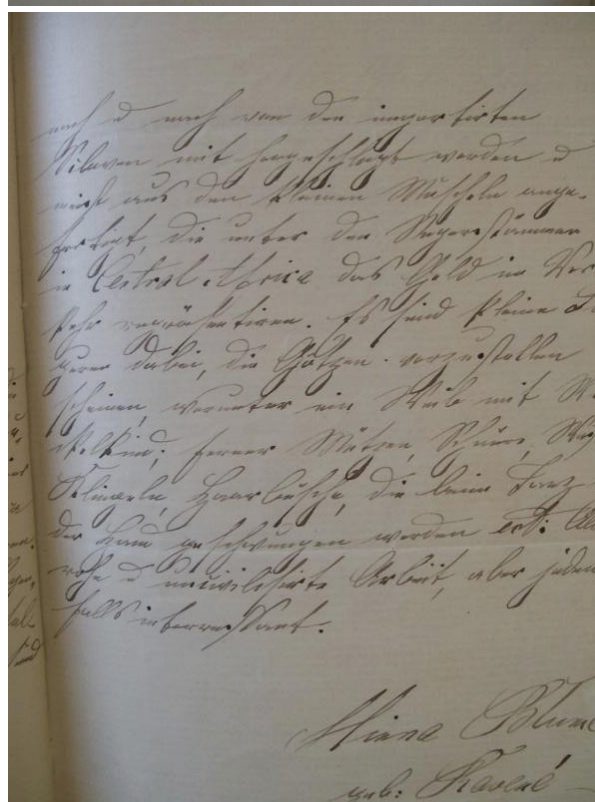 nach u nach von den importirten
Sclaven mit hergeschleppt worden u
meist aus den kleinen Muscheln ange-
fertigt, die unter den Negerstämmen
in Central-Africa das Geld im Ver
kehr repräsentiren. Es sind kleine
guren dabei, die Götzen vorzustellen
scheinen, worunter ein Weib mit
kelkind; ferner Mützen, Schuhe,
Klingeln, Haarbüsche, die beim Tanz
der Hand geschwungen werden ect:
rohe u uncivilisirte Arbeit, aber jeden
falls interressant.
Miena Blum
geb: